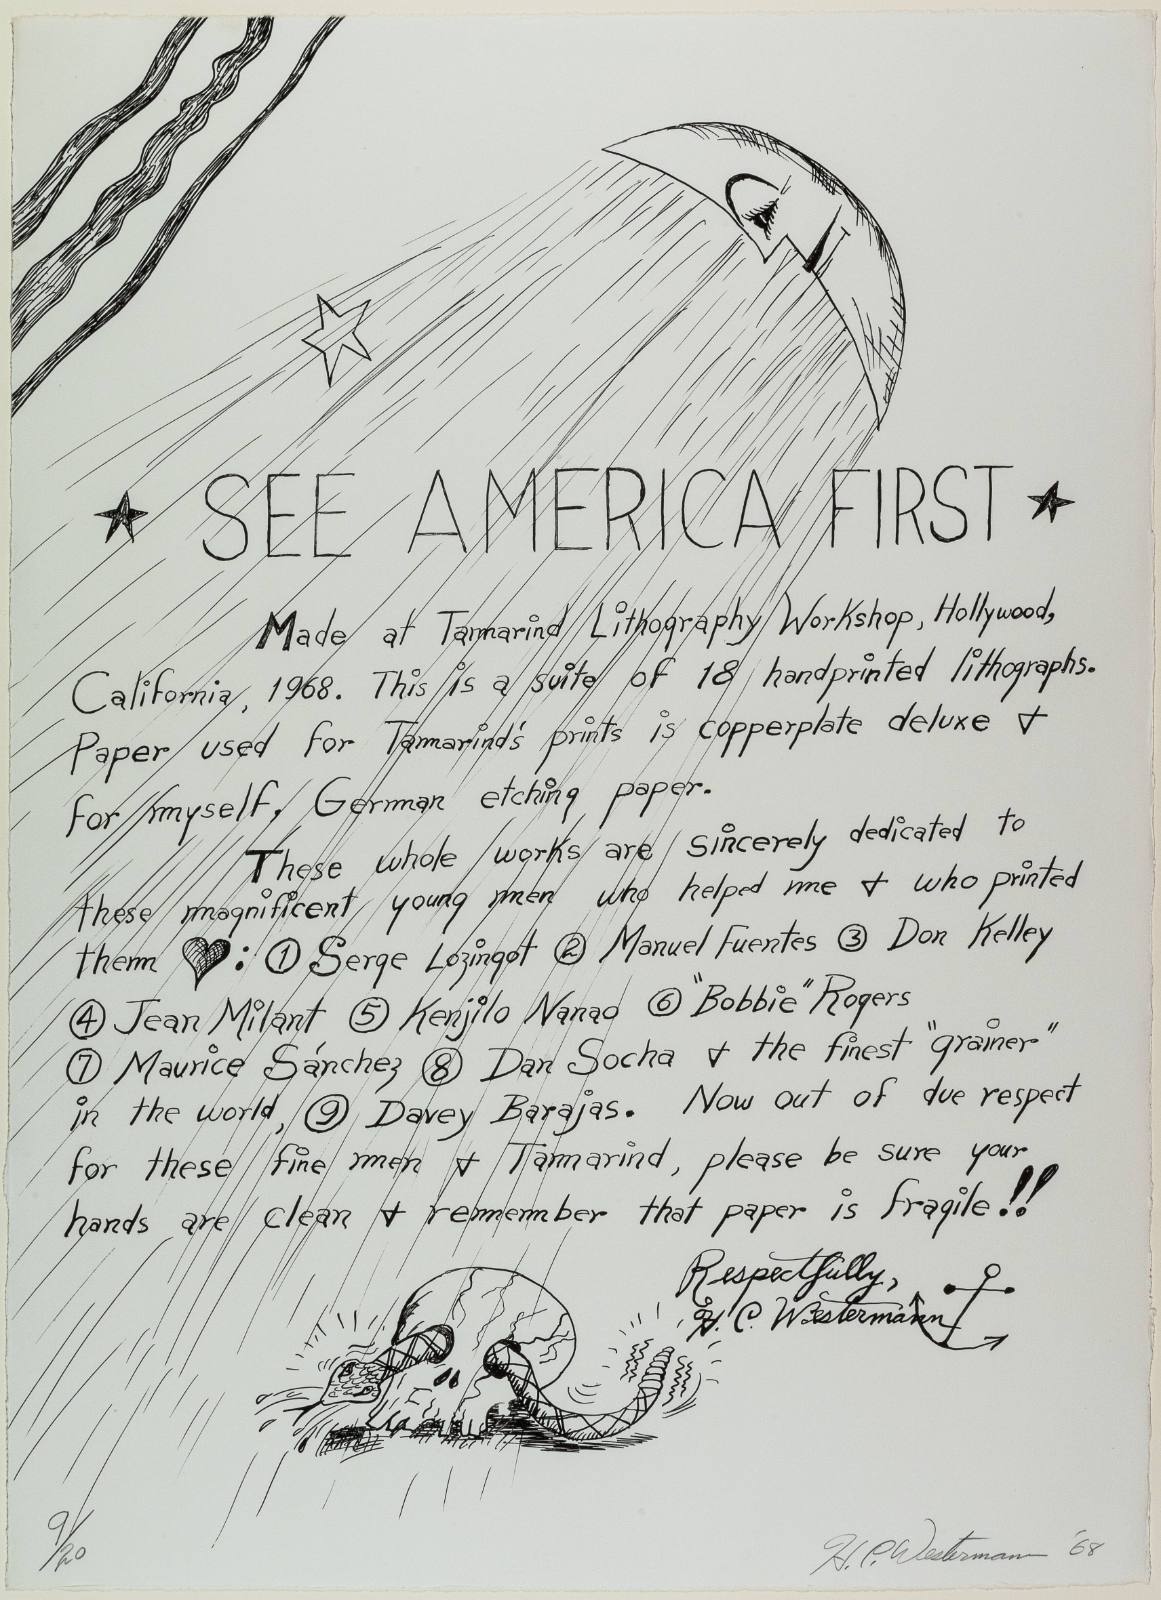 SEE AMERICA FIRST
Made at Tamarind Lithography Workshop, Hollywood,
California, 1968. This is a suite of 18 handprinted lithographs.
Paper used for Tamarind's prints is copperplate deluxe &
for myself, German etching paper.
These whole works are sincerely dedicated to
these magnificent young men who helped me & who printed
them ♥: ① Serge Lozingot ② Manuel Fuentes ③ Don Kelley
④ Jean Milant ⑤ Kenjilo Nanao ⑥ "Bobbie" Rogers
⑦ Maurice Sánchez ⑧ Dan Socha & the finest "grainer"
in the world, ⑨ Davey Barajas. Now out of due respect
for these fine men & Tamarind, please be sure your
hands are clean & remember that paper is fragile!!
Respectfully,
H. C. Westermann
9/20
H. C. Westermann '68